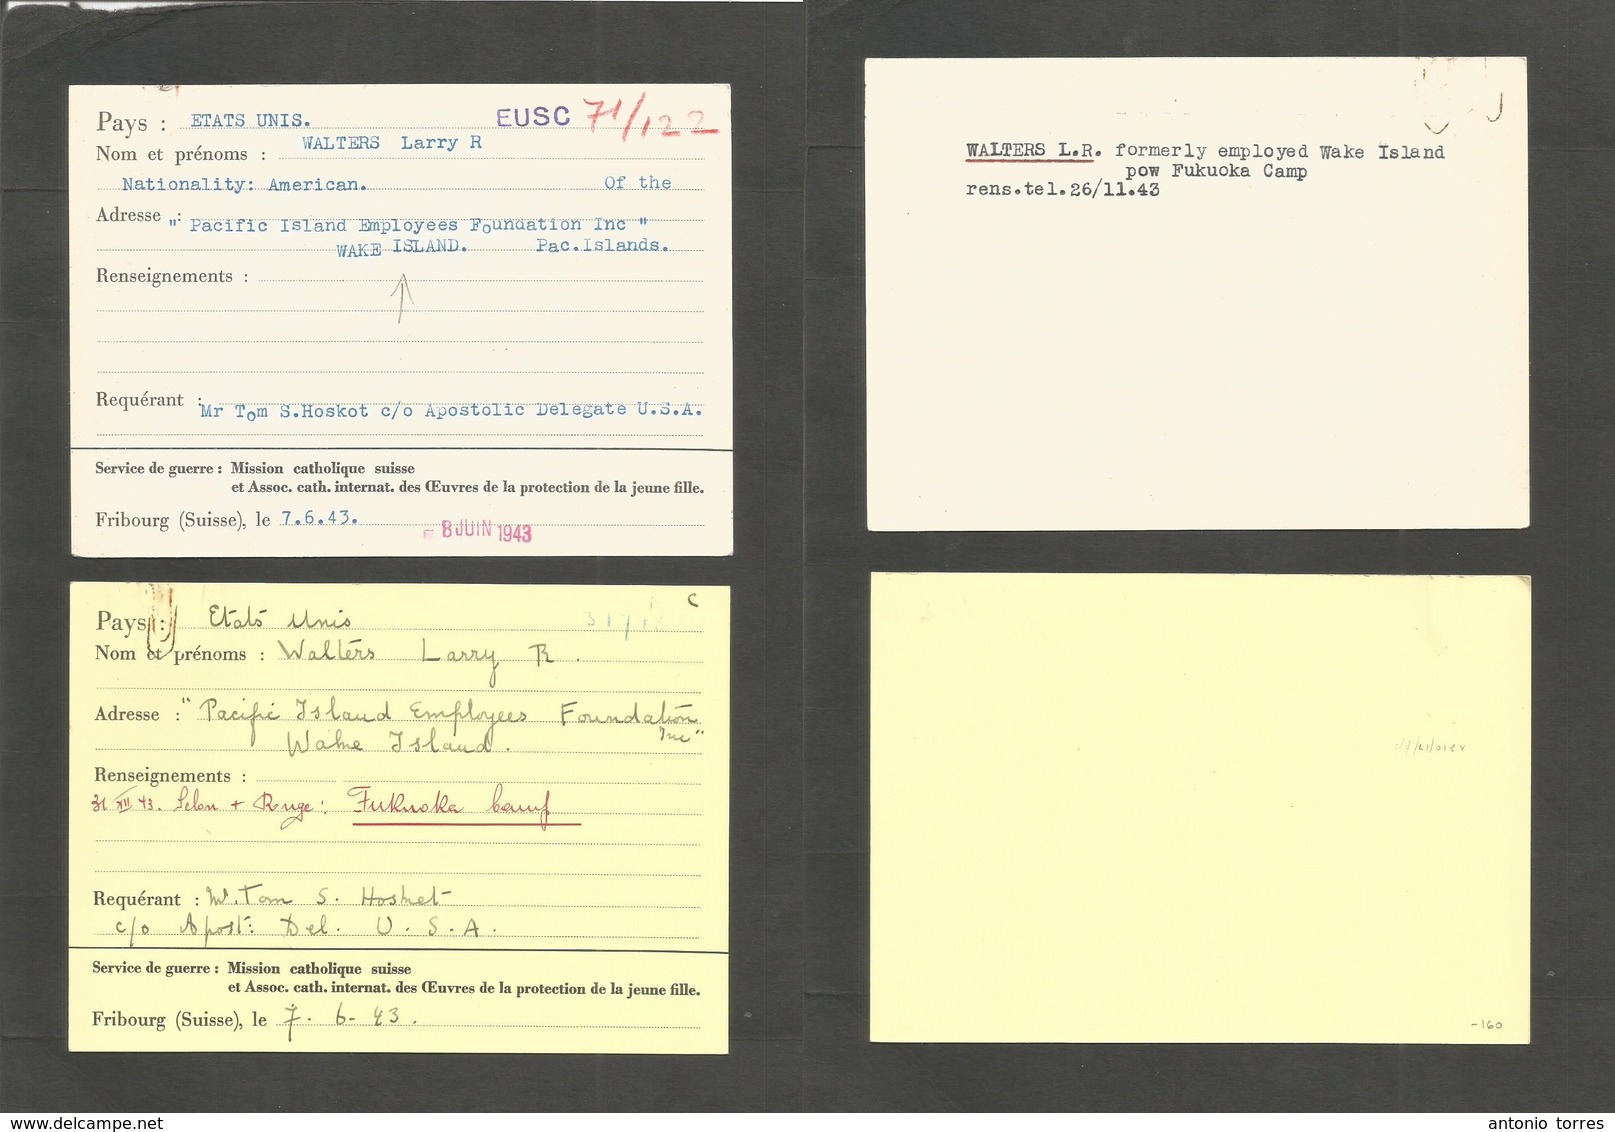 Pays : ETATS UNIS. EUSC 71/122
Nom et prénoms : WALTERS Larry R
Nationality: American. Of the
Adresse : " Pacific Island Employees Foundation Inc "
WAKE ISLAND. Pac.Islands.
Renseignements :
Requérant : Mr Tom S.Hoskot c/o Apostolic Delegate U.S.A.
Service de guerre : Mission catholique suisse
et Assoc. cath. internat. des Œuvres de la protection de la jeune fille.
Fribourg (Suisse), le 7.6.43.
- 8 JUIN 1943
WALTERS L.R. formerly employed Wake Island
pow Fukuoka Camp
rens.tel.26/11.43
C
Pays : Etats Unis
Nom et prénoms : Walters Larry R.
Adresse : "Pacific Island Employees Foundation
Inc"
Wake Island.
Renseignements :
31 XII 43. Selon + Rouge: Fukuoka Camp
Requérant : M. Tom S. Hosket
c/o Apost: Del. U.S.A.
Service de guerre : Mission catholique suisse
et Assoc. cath. internat. des Œuvres de la protection de la jeune fille.
Fribourg (Suisse), le 7.6-43.
-160
antonio torres